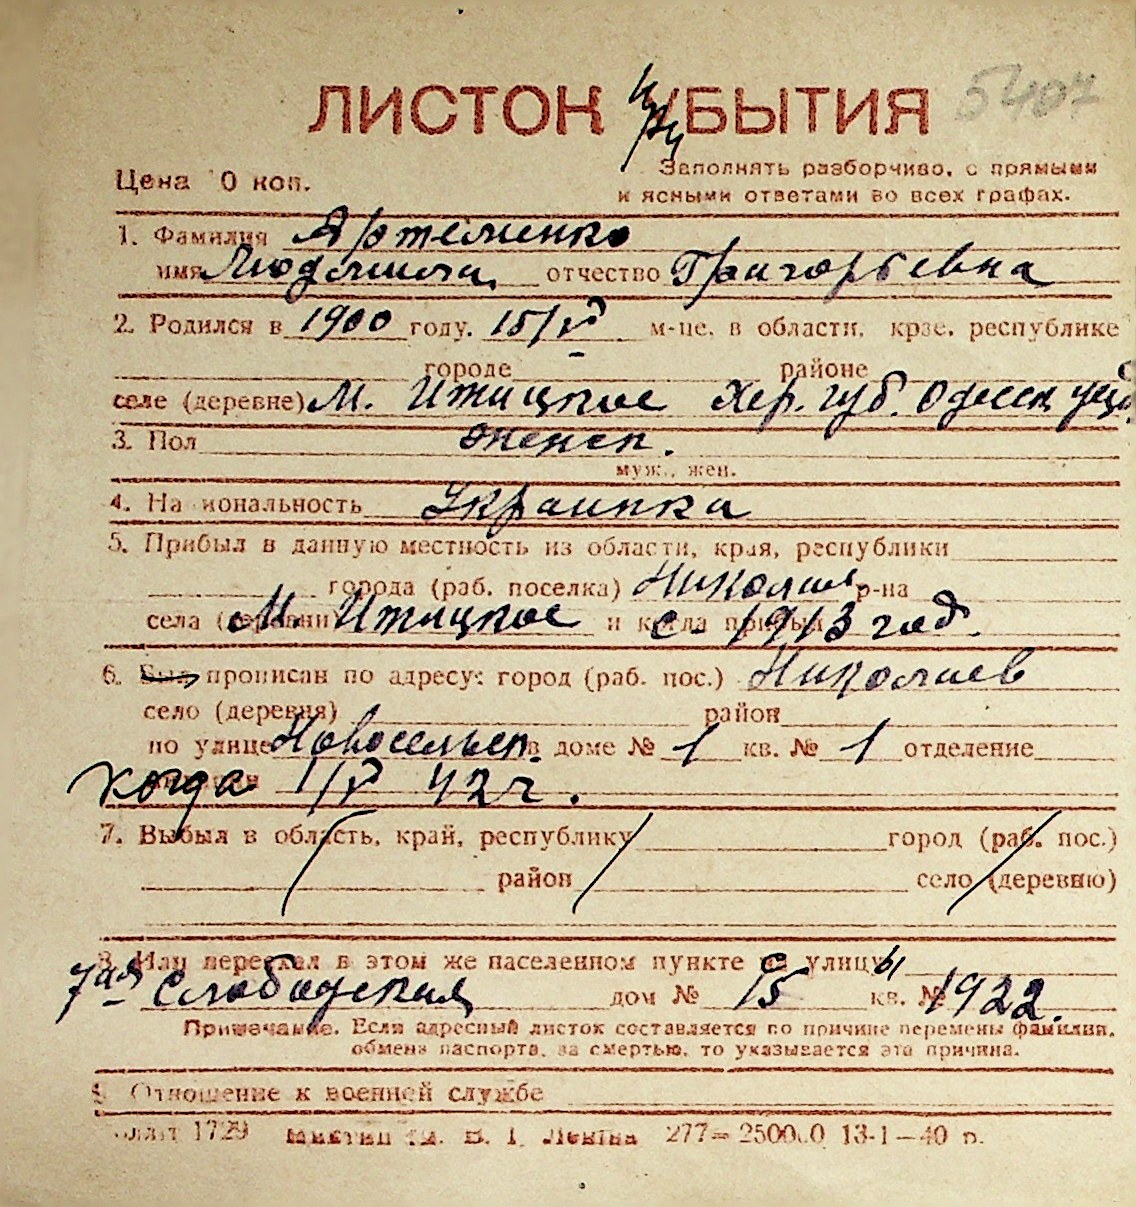 ЛИСТОК УБЫТИЯ 5407
Цена 10 коп.
Заполнять разборчиво, с прямыми
и ясными ответами во всех графах.
1. Фамилия Яртеменко
имя Людмила отчество Григорьевна
2. Родился в 1900 году. 15/V м-це, в области, крае, республике
городе районе
селе (деревне) М. Итицкое Хер. губ. Одесск уезд
3. Пол женск.
муж., жен.
4. Национальность Украинка
5. Прибыл в данную местность из области, края, республики
города (раб. поселка) Николаев р-на
села (деревни) М. Итицкое и когда прибыл с 1913 год.
6. Был прописан по адресу: город (раб. пос.) Николаев
село (деревня) район
по улице Новосельск. в доме № 1 кв. № 1 отделение
когда 1/V 42 г.
7. Выбыл в область, край, республику город (раб. пос.)
район село (деревню)
8. Или переехал в этом же населенном пункте с улицы
7ая Слободская дом № 15 кв. № 1922.
Примечание. Если адресный листок составляется по причине перемены фамилии,
обмена паспорта, за смертью, то указывается эта причина.
9. Отношение к военной службе
1729 им. В. І. Леніна 277—250000 13-1—40 р.